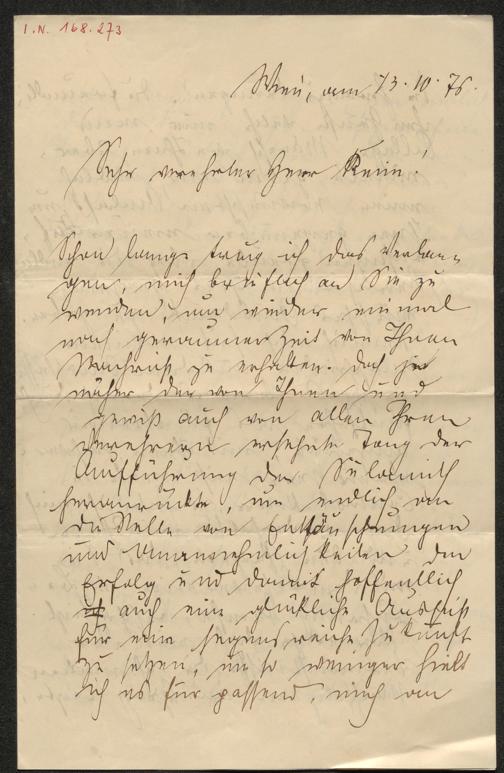 I.N. 168.273
Wien, am 13.10.76.
Sehr verehrter Herr Keim!
Schon lange trug ich das Verlan-
gen, mich brieflich an Sie zu
wenden, um wieder einmal
nach geraumer Zeit von Ihnen
Nachricht zu erhalten. Doch je
näher der von Ihnen und
gewiß auch von allen Ihren
Verehrern ersehnte Tag der
Aufführung der Sulamith
heranrückte, um endlich an
die Stelle von Enttäuschungen
und Unannehmlichkeiten den
Erfolg und damit hoffentlich
auch eine glückliche Aussicht
für eine segensreiche Zukunft
zu setzen, um so weniger hielt
ich es für passend, mich an